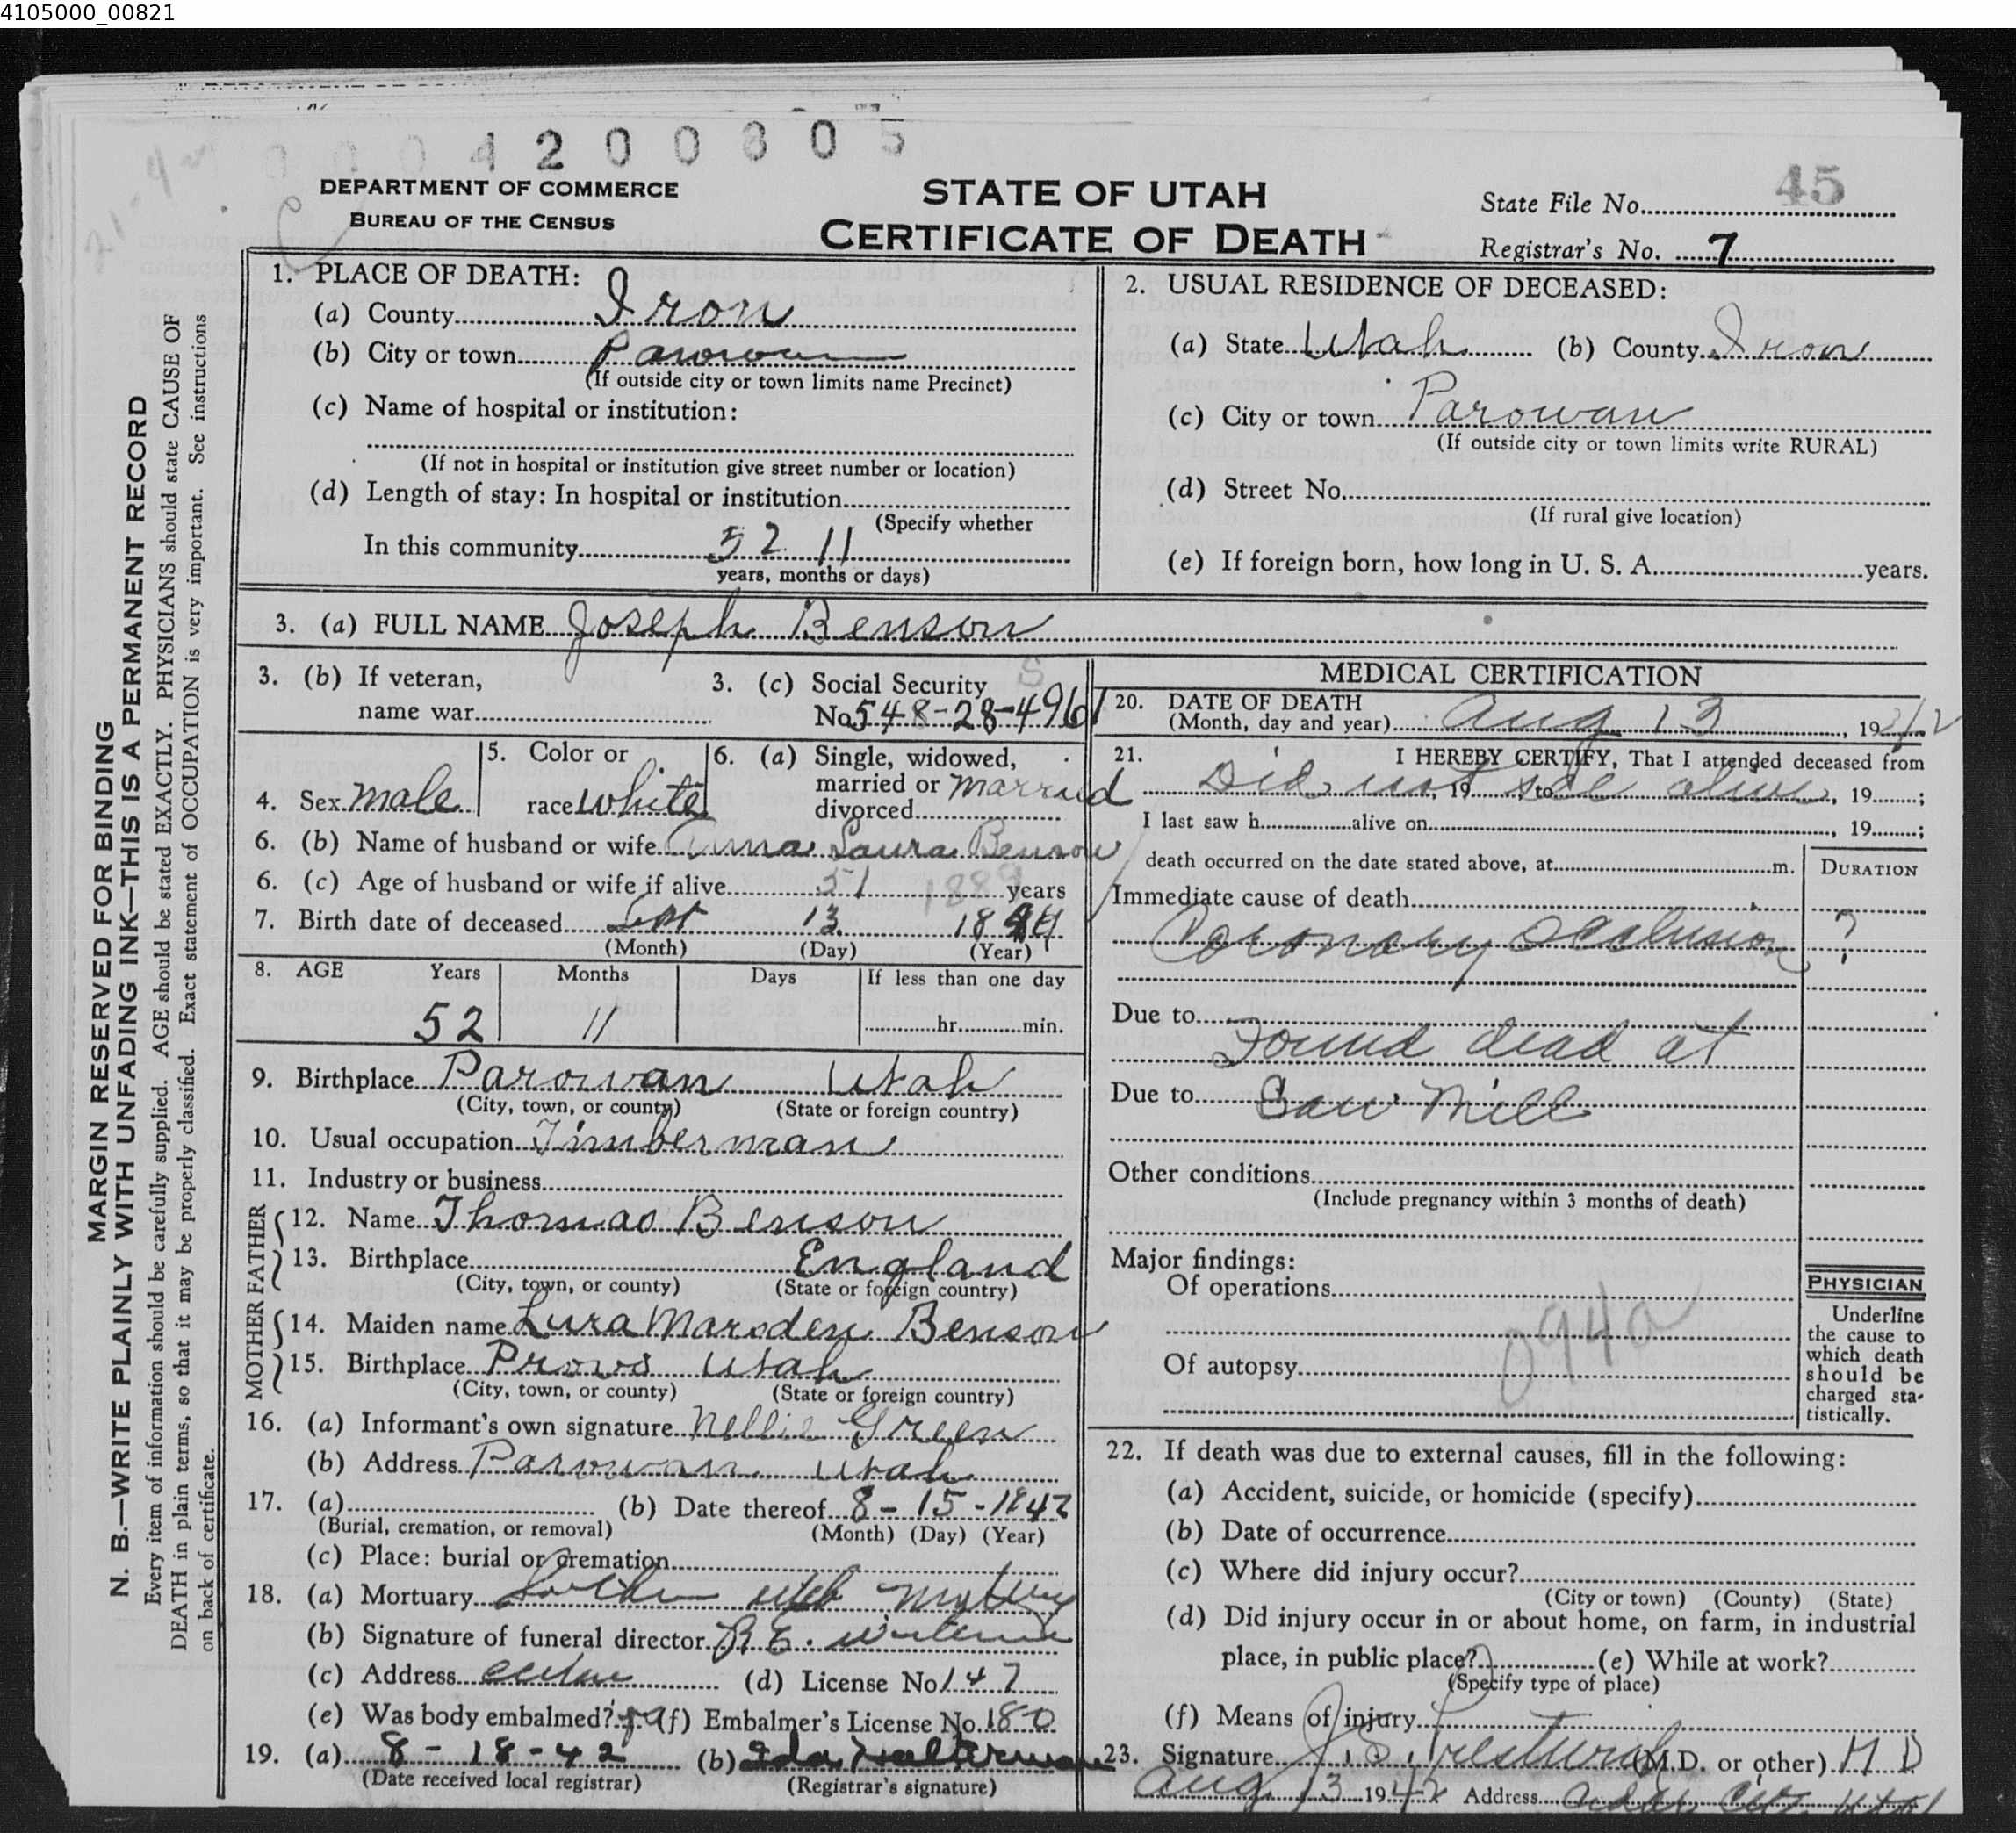 4105000_00821
4200805
45
DEPARTMENT OF COMMERCE
BUREAU OF THE CENSUS
STATE OF UTAH
CERTIFICATE OF DEATH
State File No.
Registrar's No. 7
MARGIN RESERVED FOR BINDING
N. B.—WRITE PLAINLY WITH UNFADING INK—THIS IS A PERMANENT RECORD
Every item of information should be carefully supplied. AGE should be stated EXACTLY. PHYSICIANS should state CAUSE OF
DEATH in plain terms, so that it may be properly classified. Exact statement of OCCUPATION is very important. See instructions
on back of certificate.
1. PLACE OF DEATH:
(a) County Iron
(b) City or town Parowan
(If outside city or town limits name Precinct)
(c) Name of hospital or institution:
(If not in hospital or institution give street number or location)
(d) Length of stay: In hospital or institution
(Specify whether
In this community 52 11
years, months or days)
2. USUAL RESIDENCE OF DECEASED:
(a) State Utah (b) County Iron
(c) City or town Parowan
(If outside city or town limits write RURAL)
(d) Street No.
(If rural give location)
(e) If foreign born, how long in U. S. A. years.
3. (a) FULL NAME Joseph Benson
3. (b) If veteran,
name war
3. (c) Social Security
No. 548-28-4961
4. Sex male
5. Color or
race white
6. (a) Single, widowed,
married or married
divorced
6. (b) Name of husband or wife Anna Laura Benson
6. (c) Age of husband or wife if alive 51 years
1889
7. Birth date of deceased Sept 13
(Month) (Day) (Year)
8. AGE Years Months Days If less than one day
52 11 hr. min.
9. Birthplace Parowan Utah
(City, town, or county) (State or foreign country)
10. Usual occupation Timberman
11. Industry or business
FATHER
12. Name Thomas Benson
13. Birthplace England
(City, town, or county) (State or foreign country)
MOTHER
14. Maiden name Lura Marsden Benson
15. Birthplace Provo Utah
(City, town, or county) (State or foreign country)
16. (a) Informant's own signature Nellie Green
(b) Address Parowan Utah
17. (a) (b) Date thereof 8-15-1942
(Burial, cremation, or removal) (Month) (Day) (Year)
(c) Place: burial or cremation
18. (a) Mortuary
(b) Signature of funeral director R E.
(c) Address Cedar (d) License No. 147
(e) Was body embalmed? (f) Embalmer's License No. 180
19. (a) 8-18-42 (b) Ida
(Date received local registrar) (Registrar's signature)
MEDICAL CERTIFICATION
20. DATE OF DEATH
(Month, day and year) Aug 13, 1942
21. I HEREBY CERTIFY, That I attended deceased from
Did not see alive, 19 to, 19;
I last saw h alive on, 19;
death occurred on the date stated above, at m.
DURATION
Immediate cause of death
Coronary Occlusion ?
Due to
Found dead at
Due to Saw Mill
Other conditions
(Include pregnancy within 3 months of death)
Major findings:
Of operations
094a
Of autopsy
PHYSICIAN
Underline
the cause to
which death
should be
charged sta-
tistically.
22. If death was due to external causes, fill in the following:
(a) Accident, suicide, or homicide (specify)
(b) Date of occurrence
(c) Where did injury occur?
(City or town) (County) (State)
(d) Did injury occur in or about home, on farm, in industrial
place, in public place? (e) While at work?
(Specify type of place)
(f) Means of injury
23. Signature (M.D. or other) M D
Aug 13 1942 Address Cedar City Utah